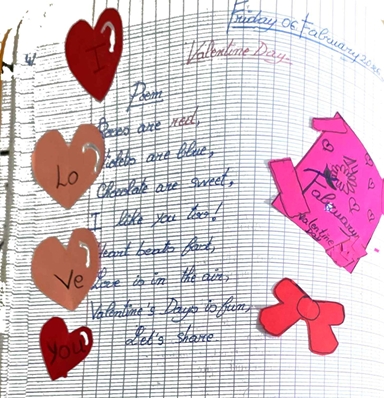 Friday 06 Fabruary
Valentine Day.
Poem
Roses are red,
Violets are blue,
Chocolate are sweet,
I like you too!
Heart beats fast,
Love is in the air,
Valentine's Days is fun,
Let's share.
I
Lo
Ve
you
Fabruary
Valentine